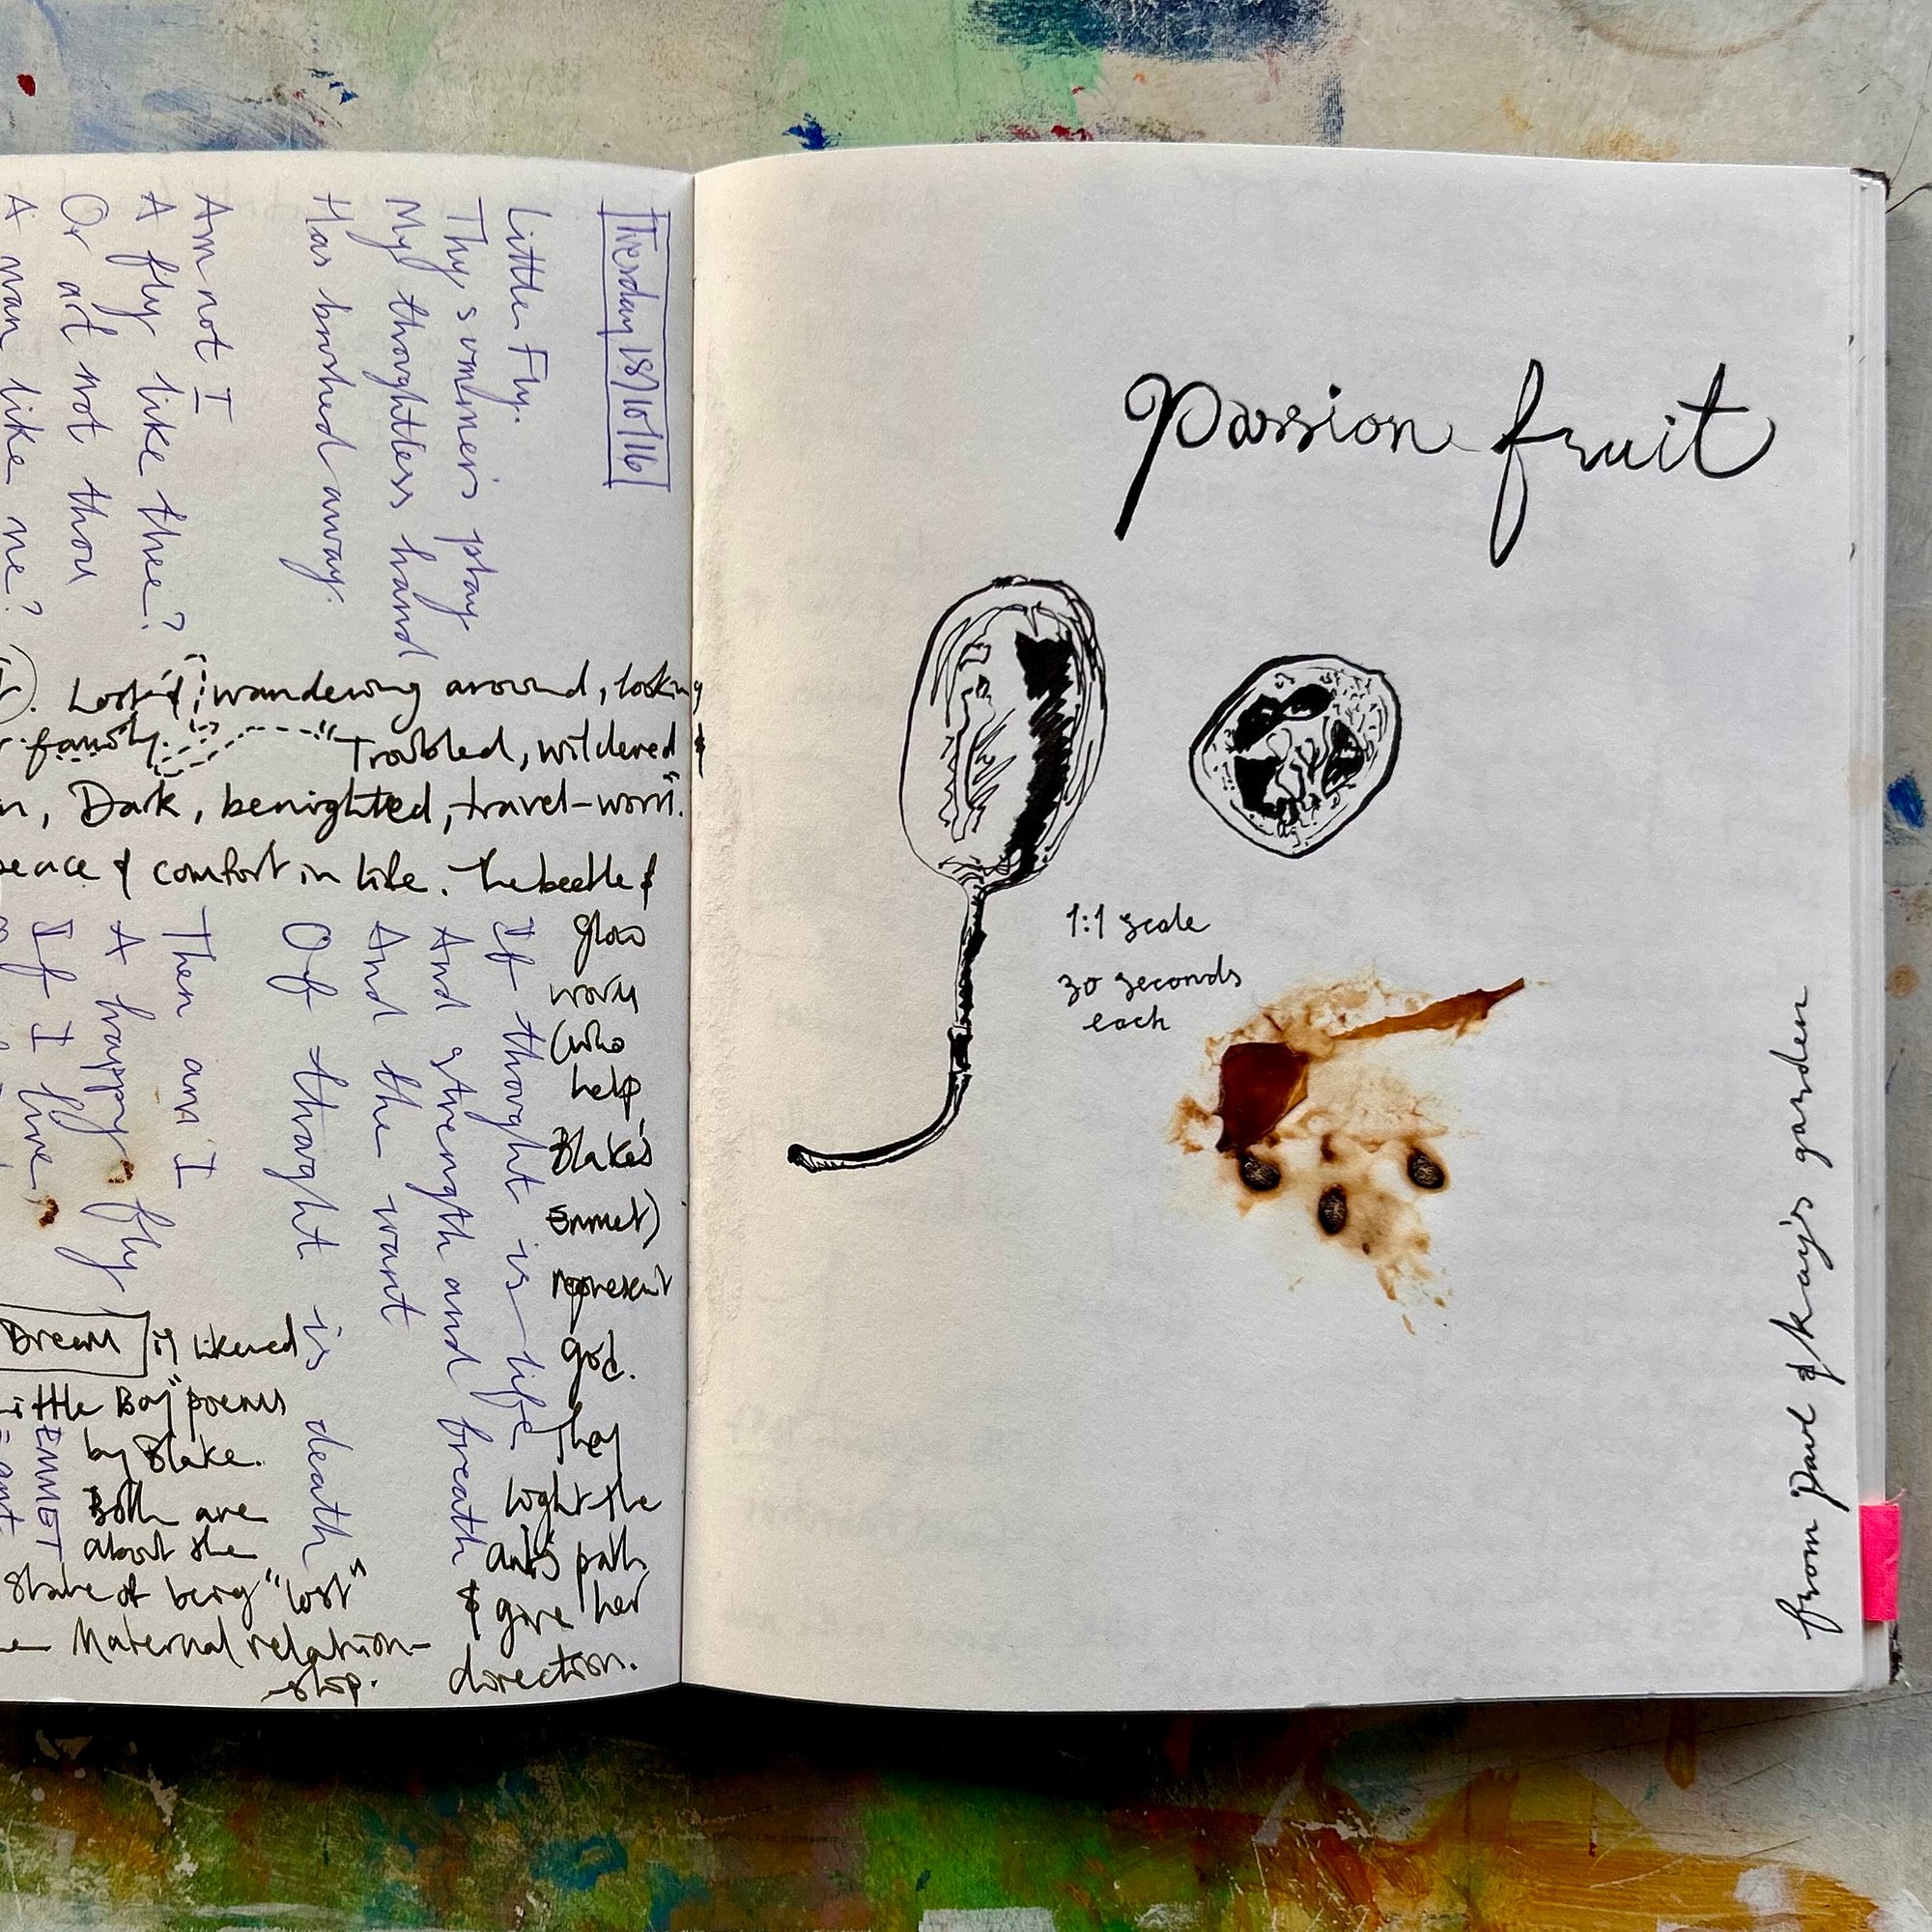 Tuesday 18/10/16
Little Fly.
Thy summer's play
My thoughtless hand
Has brushed away.
Am not I
A fly like thee?
Or art not thou
A man like me?
Lost & wandering around, looking
family. "Troubled, wildered &
Dark, benighted, travel-worn".
peace & comfort in life. The beetle &
glow
worm
(who
help
Blake's
Emmet)
represent
god.
They
light the
ant's path
& give her
direction.
If thought is life
And strength and breath
And the want
Of thought is death
Then am I
A happy fly
If I live,
Dream is likened
Little Boy" poems
by Blake.
Both are
about the
state of being "lost"
Maternal relation-
ship.
EMMET
= ant.
Passion fruit
1:1 scale
30 seconds
each
from Paul & Kay's garden